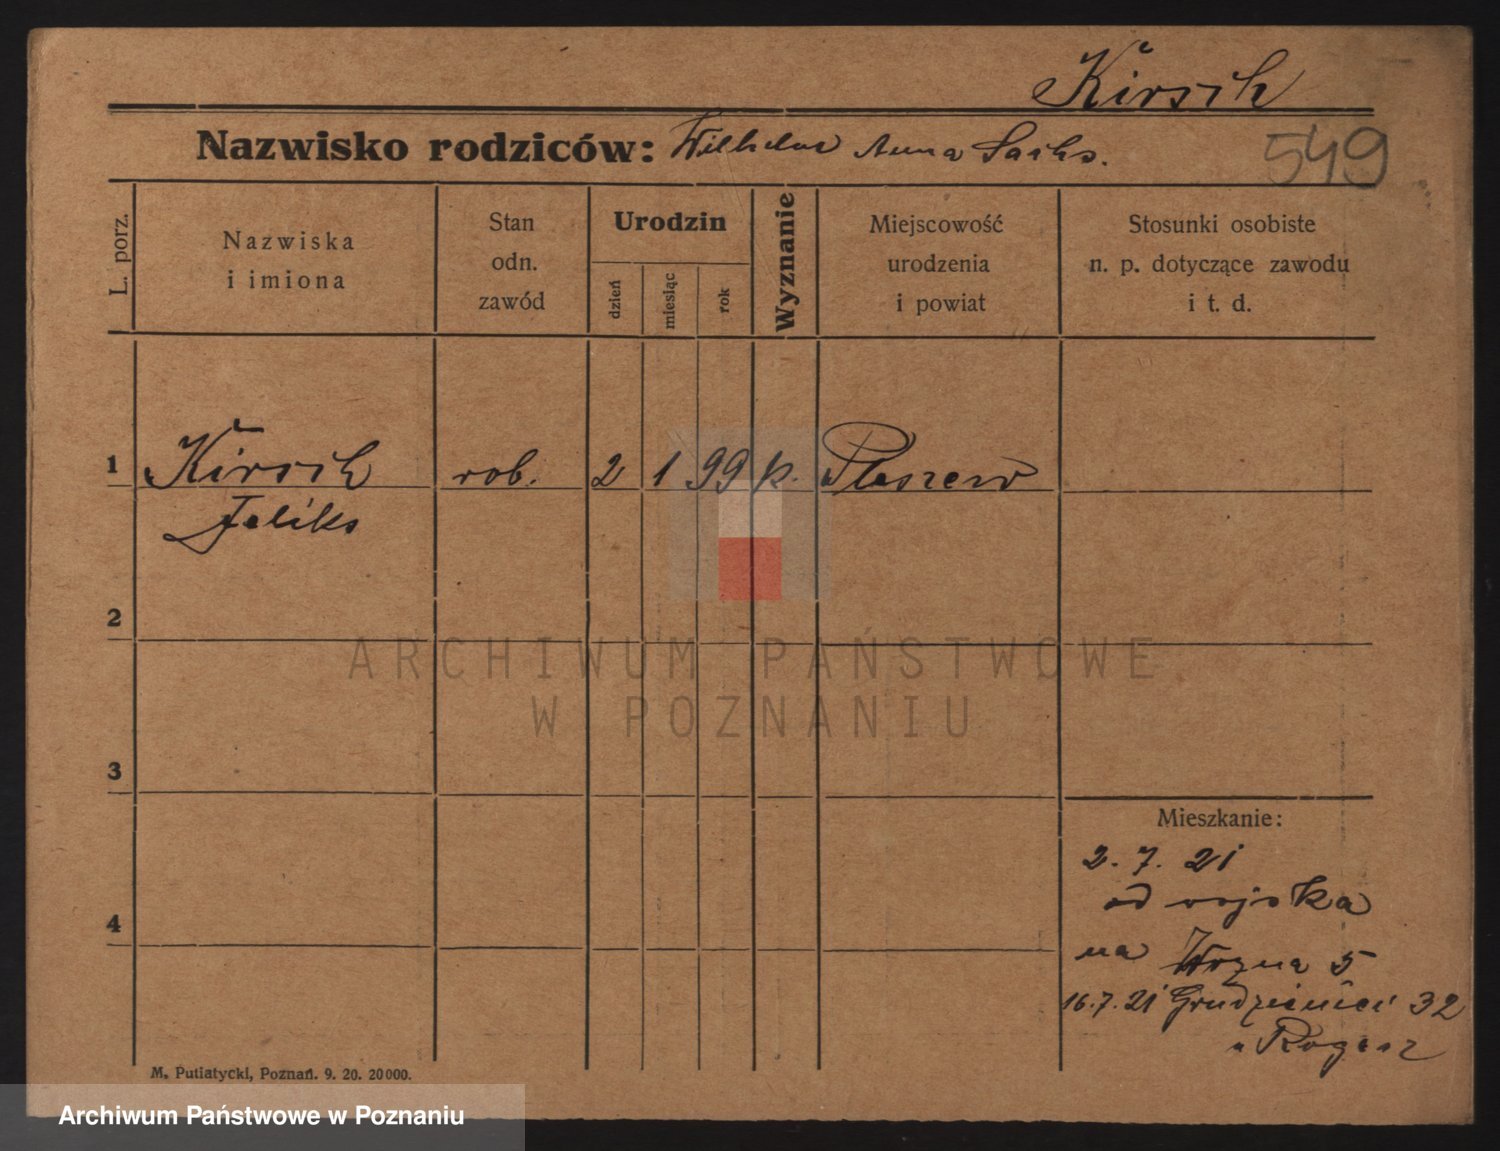 Kirsch
Nazwisko rodziców: Wilhelm Anna Sachs.
549
L. porz.
Nazwiska
i imiona
Stan
odn.
zawód
Urodzin
dzień
miesiąc
rok
Wyznanie
Miejscowość
urodzenia
i powiat
Stosunki osobiste
n. p. dotyczące zawodu
i t. d.
1 Kirsch rob. 2 1 99 k. Pleszew
Feliks
2
ARCHIWUM PAŃSTWOWE
W POZNANIU
3
Mieszkanie:
2. 7. 21
od wojska
4
na 5
16.7.21 32
M. Putiatycki, Poznań. 9. 20. 20000.
Archiwum Państwowe w Poznaniu